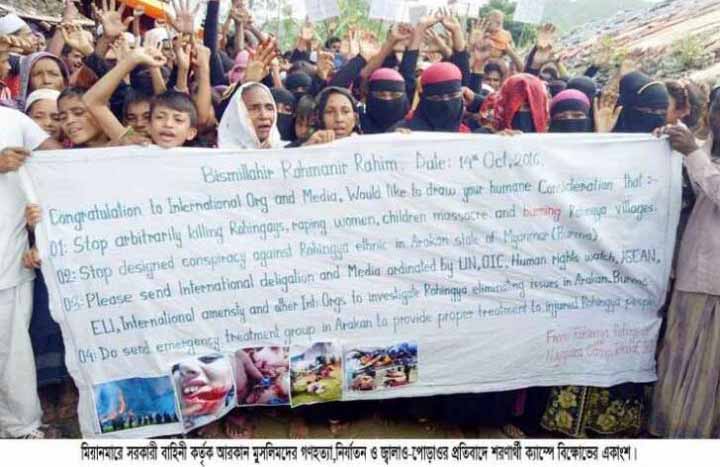 Bismillahir Rahmanir Rahim. Date: 14th Oct, 2016.
Congratulation to International Org and Media, Would like to draw your humane Consideration that :-
01: Stop arbitrarily killing Rohingays, raping women, children massacre and burning Rohingya villages.
02: Stop designed conspiracy against Rohingya ethnic in Arakan state of Myanmar (Burma)
03: Please send International deligation and Media ordinated by UN, OIC, Human rights watch, ASEAN,
EU, International amensty and other Int: Orgs to investigate Rohingya eliminating issues in Arakan, Burma
04: Do send emergency treatment group in Arakan to provide proper treatment to injured Rohingya people
From Rohingya
Nayapara Camp,
মিয়ানমারে সরকারী বাহিনী কর্তৃক আরকান মুসলিমদের গণহত্যা,নির্যাতন ও জ্বালাও-পোড়াওর প্রতিবাদে শরণার্থী ক্যাম্পে বিক্ষোভের একাংশ।